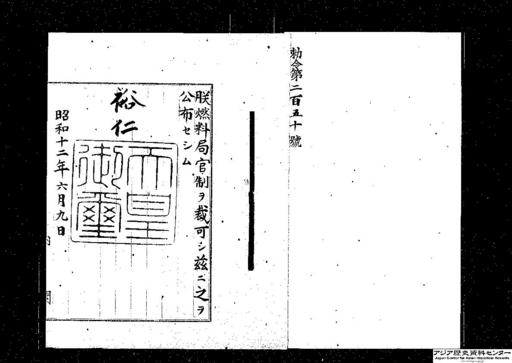 勅令第二百五十號
朕燃料局官制ヲ裁可シ茲ニ之ヲ
公布セシム
裕仁
天皇御璽
昭和十二年六月九日
アジア歴史資料センター
Japan Center for Asian Historical Records